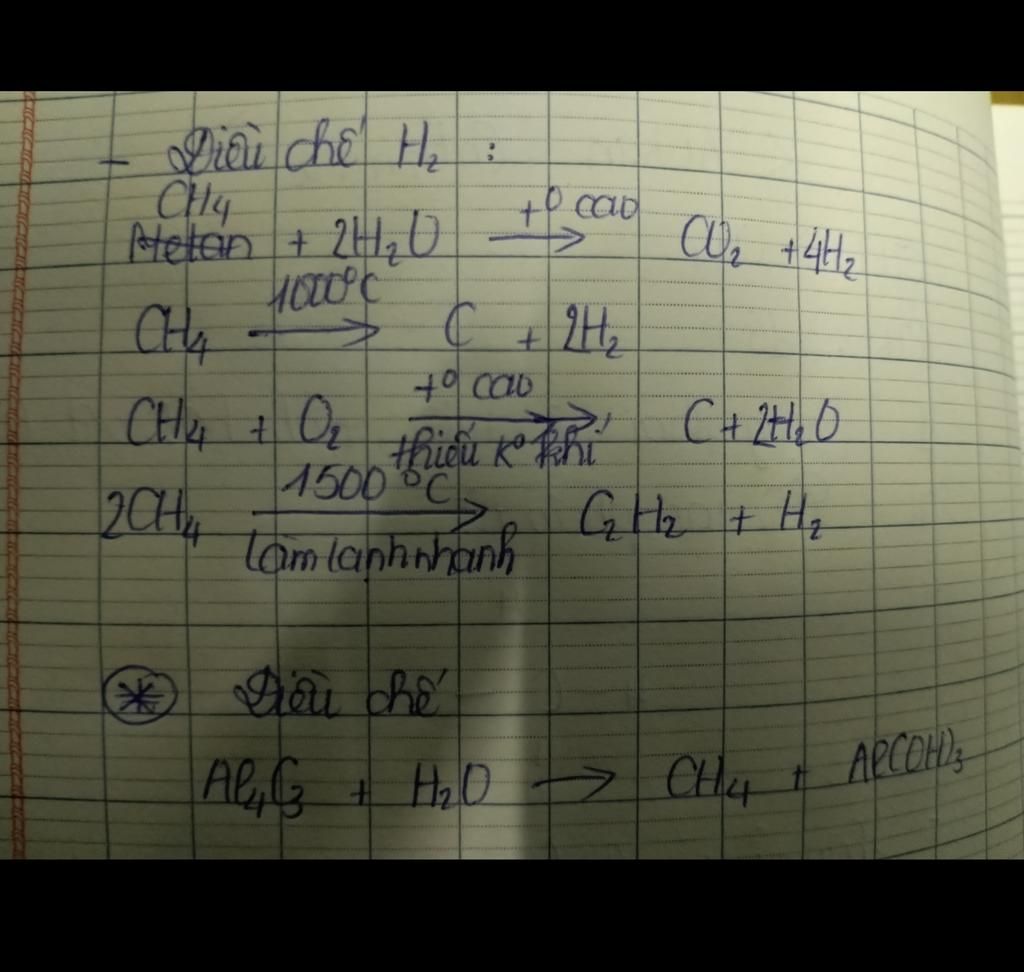 - Điều chế H₂ :
CH₄
Metan + 2H₂O →(t° cao) CO₂ + 4H₂
CH₄ →(1000°C) C + 2H₂
CH₄ + O₂ →(t° cao / thiếu k° khí) C + 2H₂O
2CH₄ →(1500°C / Làm lạnh nhanh) C₂H₂ + H₂
* Điều chế
Al₄C₃ + H₂O → CH₄ + Al(OH)₃